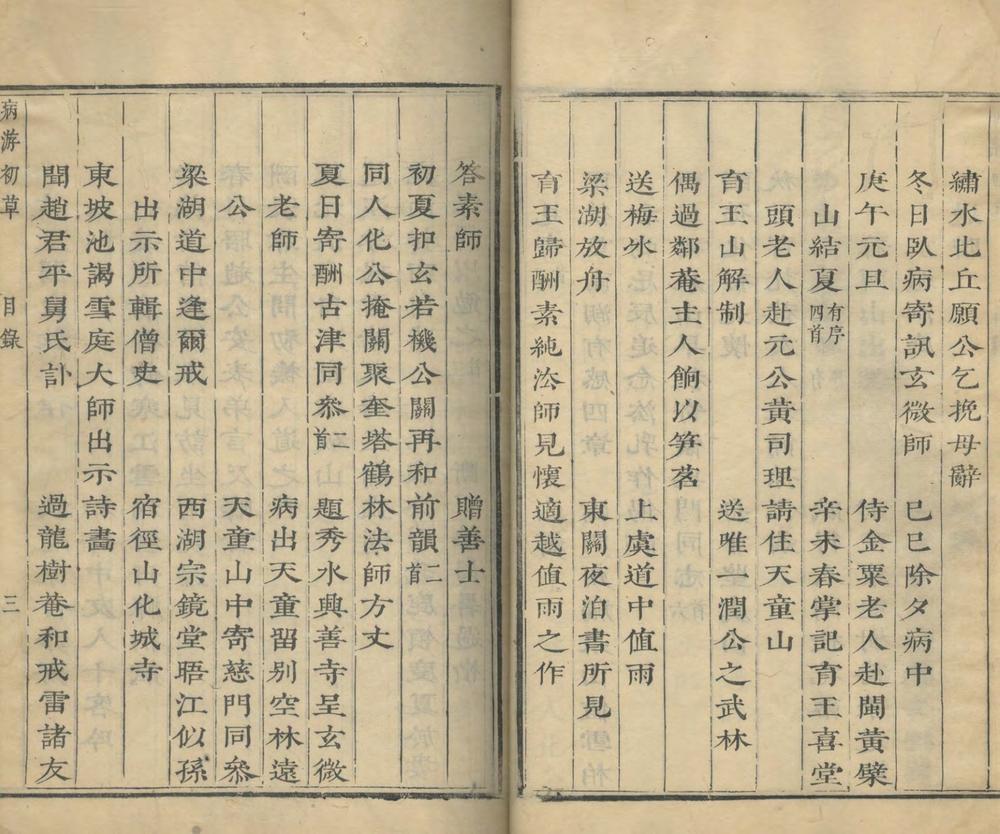 繡水比丘願公乞挽母辭
冬日臥病寄訊玄微師　巳巳除夕病中
庚午元旦　侍金粟老人赴閩黃檗
山結夏有序四首　辛未春掌記育王喜堂
頭老人赴元公黃司理請住天童山
育王山解制　送唯一潤公之武林
偶過鄰菴主人餉以筍茗
送梅氷　上虞道中值雨
梁湖放舟　東關夜泊書所見
育王歸酬素純法師見懷適越值雨之作
答素師　贈善士
初夏扣玄若機公關再和前韻二首
同人化公掩關聚奎塔鶴林法師方丈
夏日寄酬古津同叅二首　題秀水興善寺呈玄微
老師　病出天童留別空林遠
公　天童山中寄慈門同叅
梁湖道中逢爾戒　西湖宗鏡堂晤江似孫
出示所輯僧史　宿徑山化城寺
東坡池謁雪庭大師出示詩畵
聞趙君平舅氏訃　過龍樹菴和戒雷諸友
病游初草　目錄　三